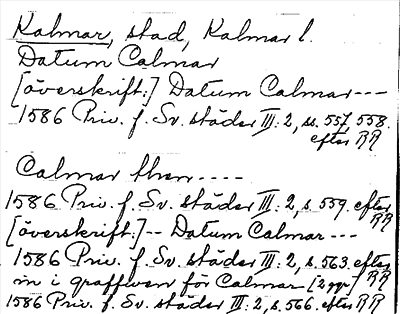 Kalmar, stad, Kalmar l.
Datum Calmar
[överskrift:] Datum Calmar ---
1586 Priv. f. Sv. städer III: 2, ss. 557, 558.
efter RR
Calmar then ----
1586 Priv. f. Sv. städer III: 2, s. 559. efter
RR
[överskrift:] -- Datum Calmar ---
1586 Priv. f. Sv. städer III: 2, s. 563. efter
RR
in i graffwen för Calmar [2 ggr]
1586 Priv. f. Sv. städer III: 2, s. 566. efter RR